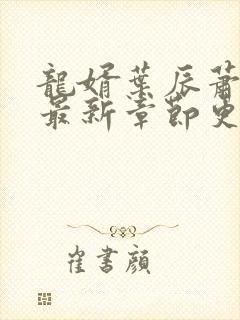 龍婿葉辰蕭
最新章節更
崔書顏